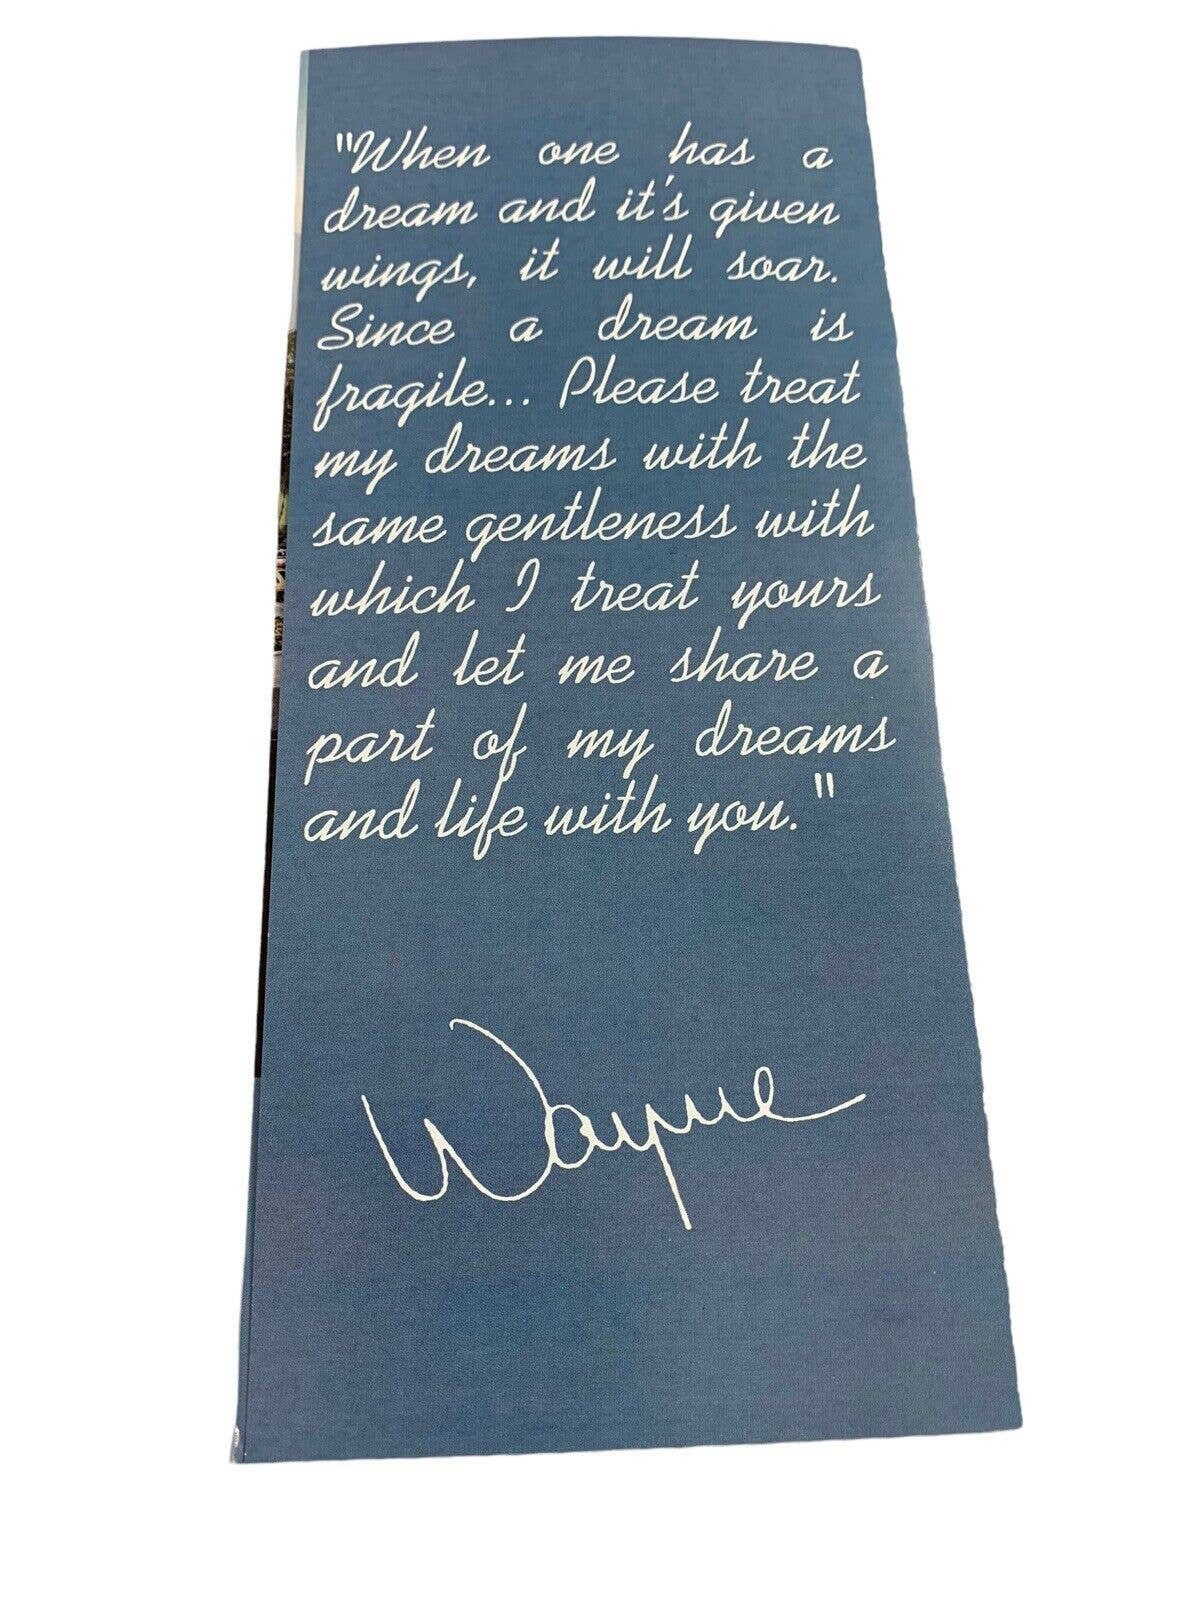 "When one has a
dream and it's given
wings, it will soar.
Since a dream is
fragile... Please treat
my dreams with the
same gentleness with
which I treat yours
and let me share a
part of my dreams
and life with you."
Wayne